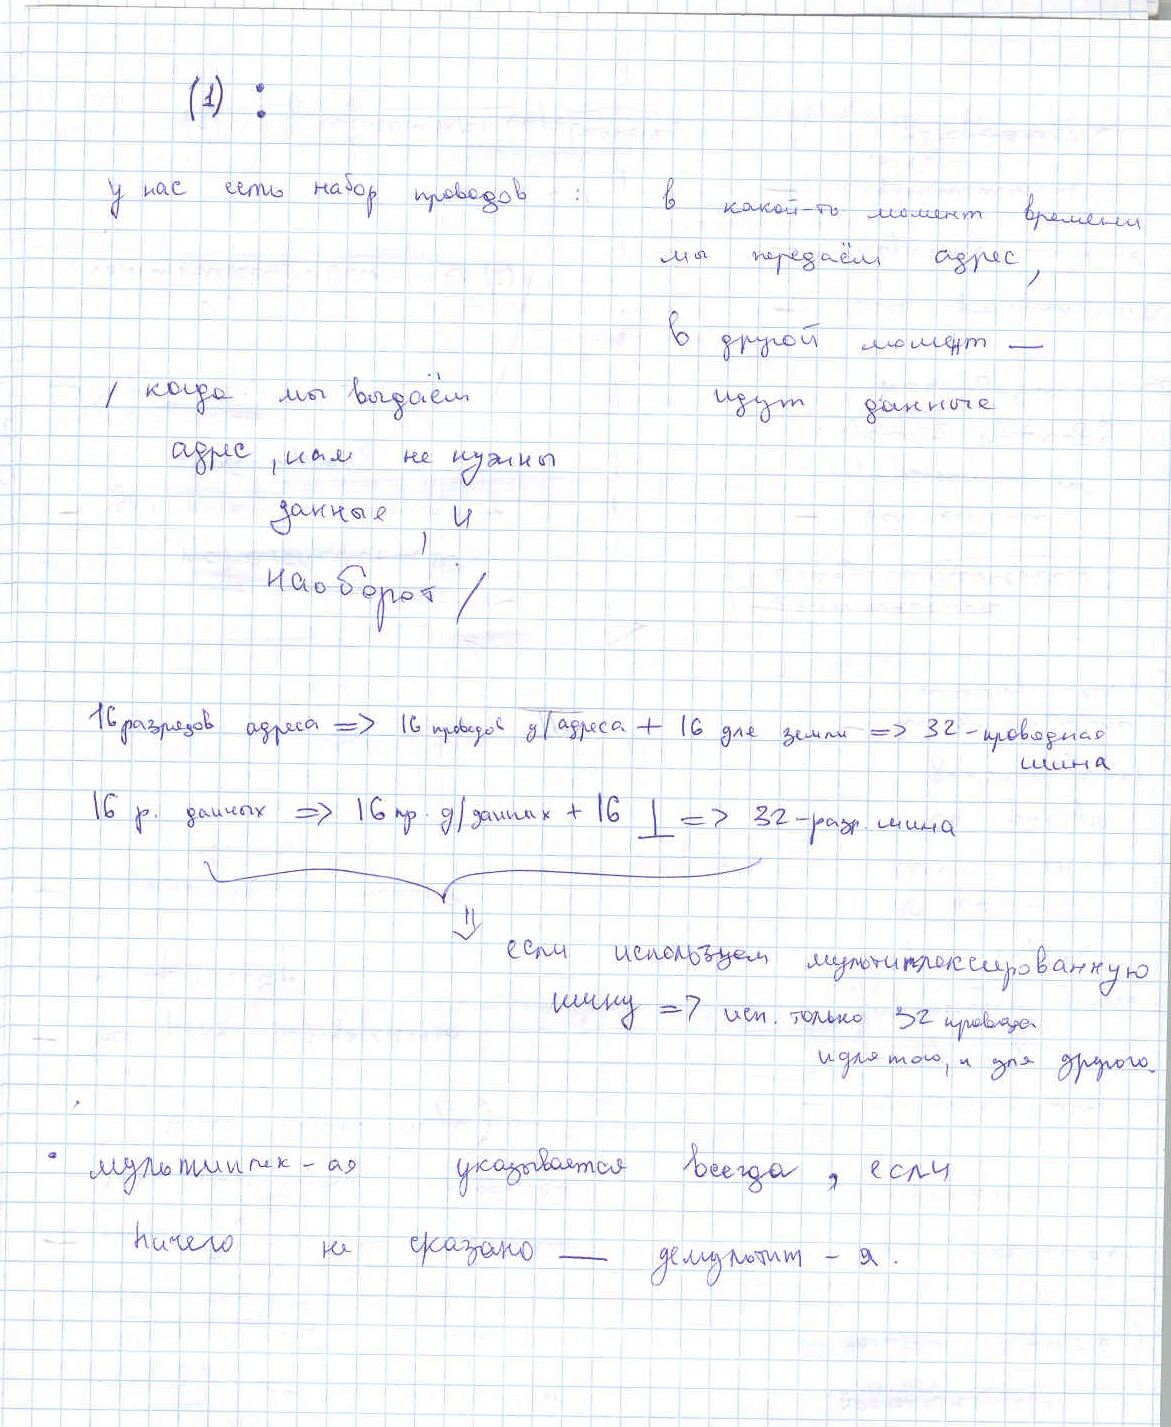 (1) :
у нас есть набор проводов :
в какой-то момент времени
мы передаём адрес,
в другой момент —
идут данные
/ когда мы выдаём
адрес, нам не нужны
данные, и
наоборот /
16 разрядов адреса => 16 проводов д/адреса + 16 для земли => 32-проводная
шина
16 р. данных => 16 пр. д/данных + 16 ⊥ => 32-разр. шина
⇓
если используем мультиплексированную
шину => исп. только 32 провода
и для того, и для другого.
• мультиплек-ая указывается всегда, если
ничего не сказано — демультип-я.